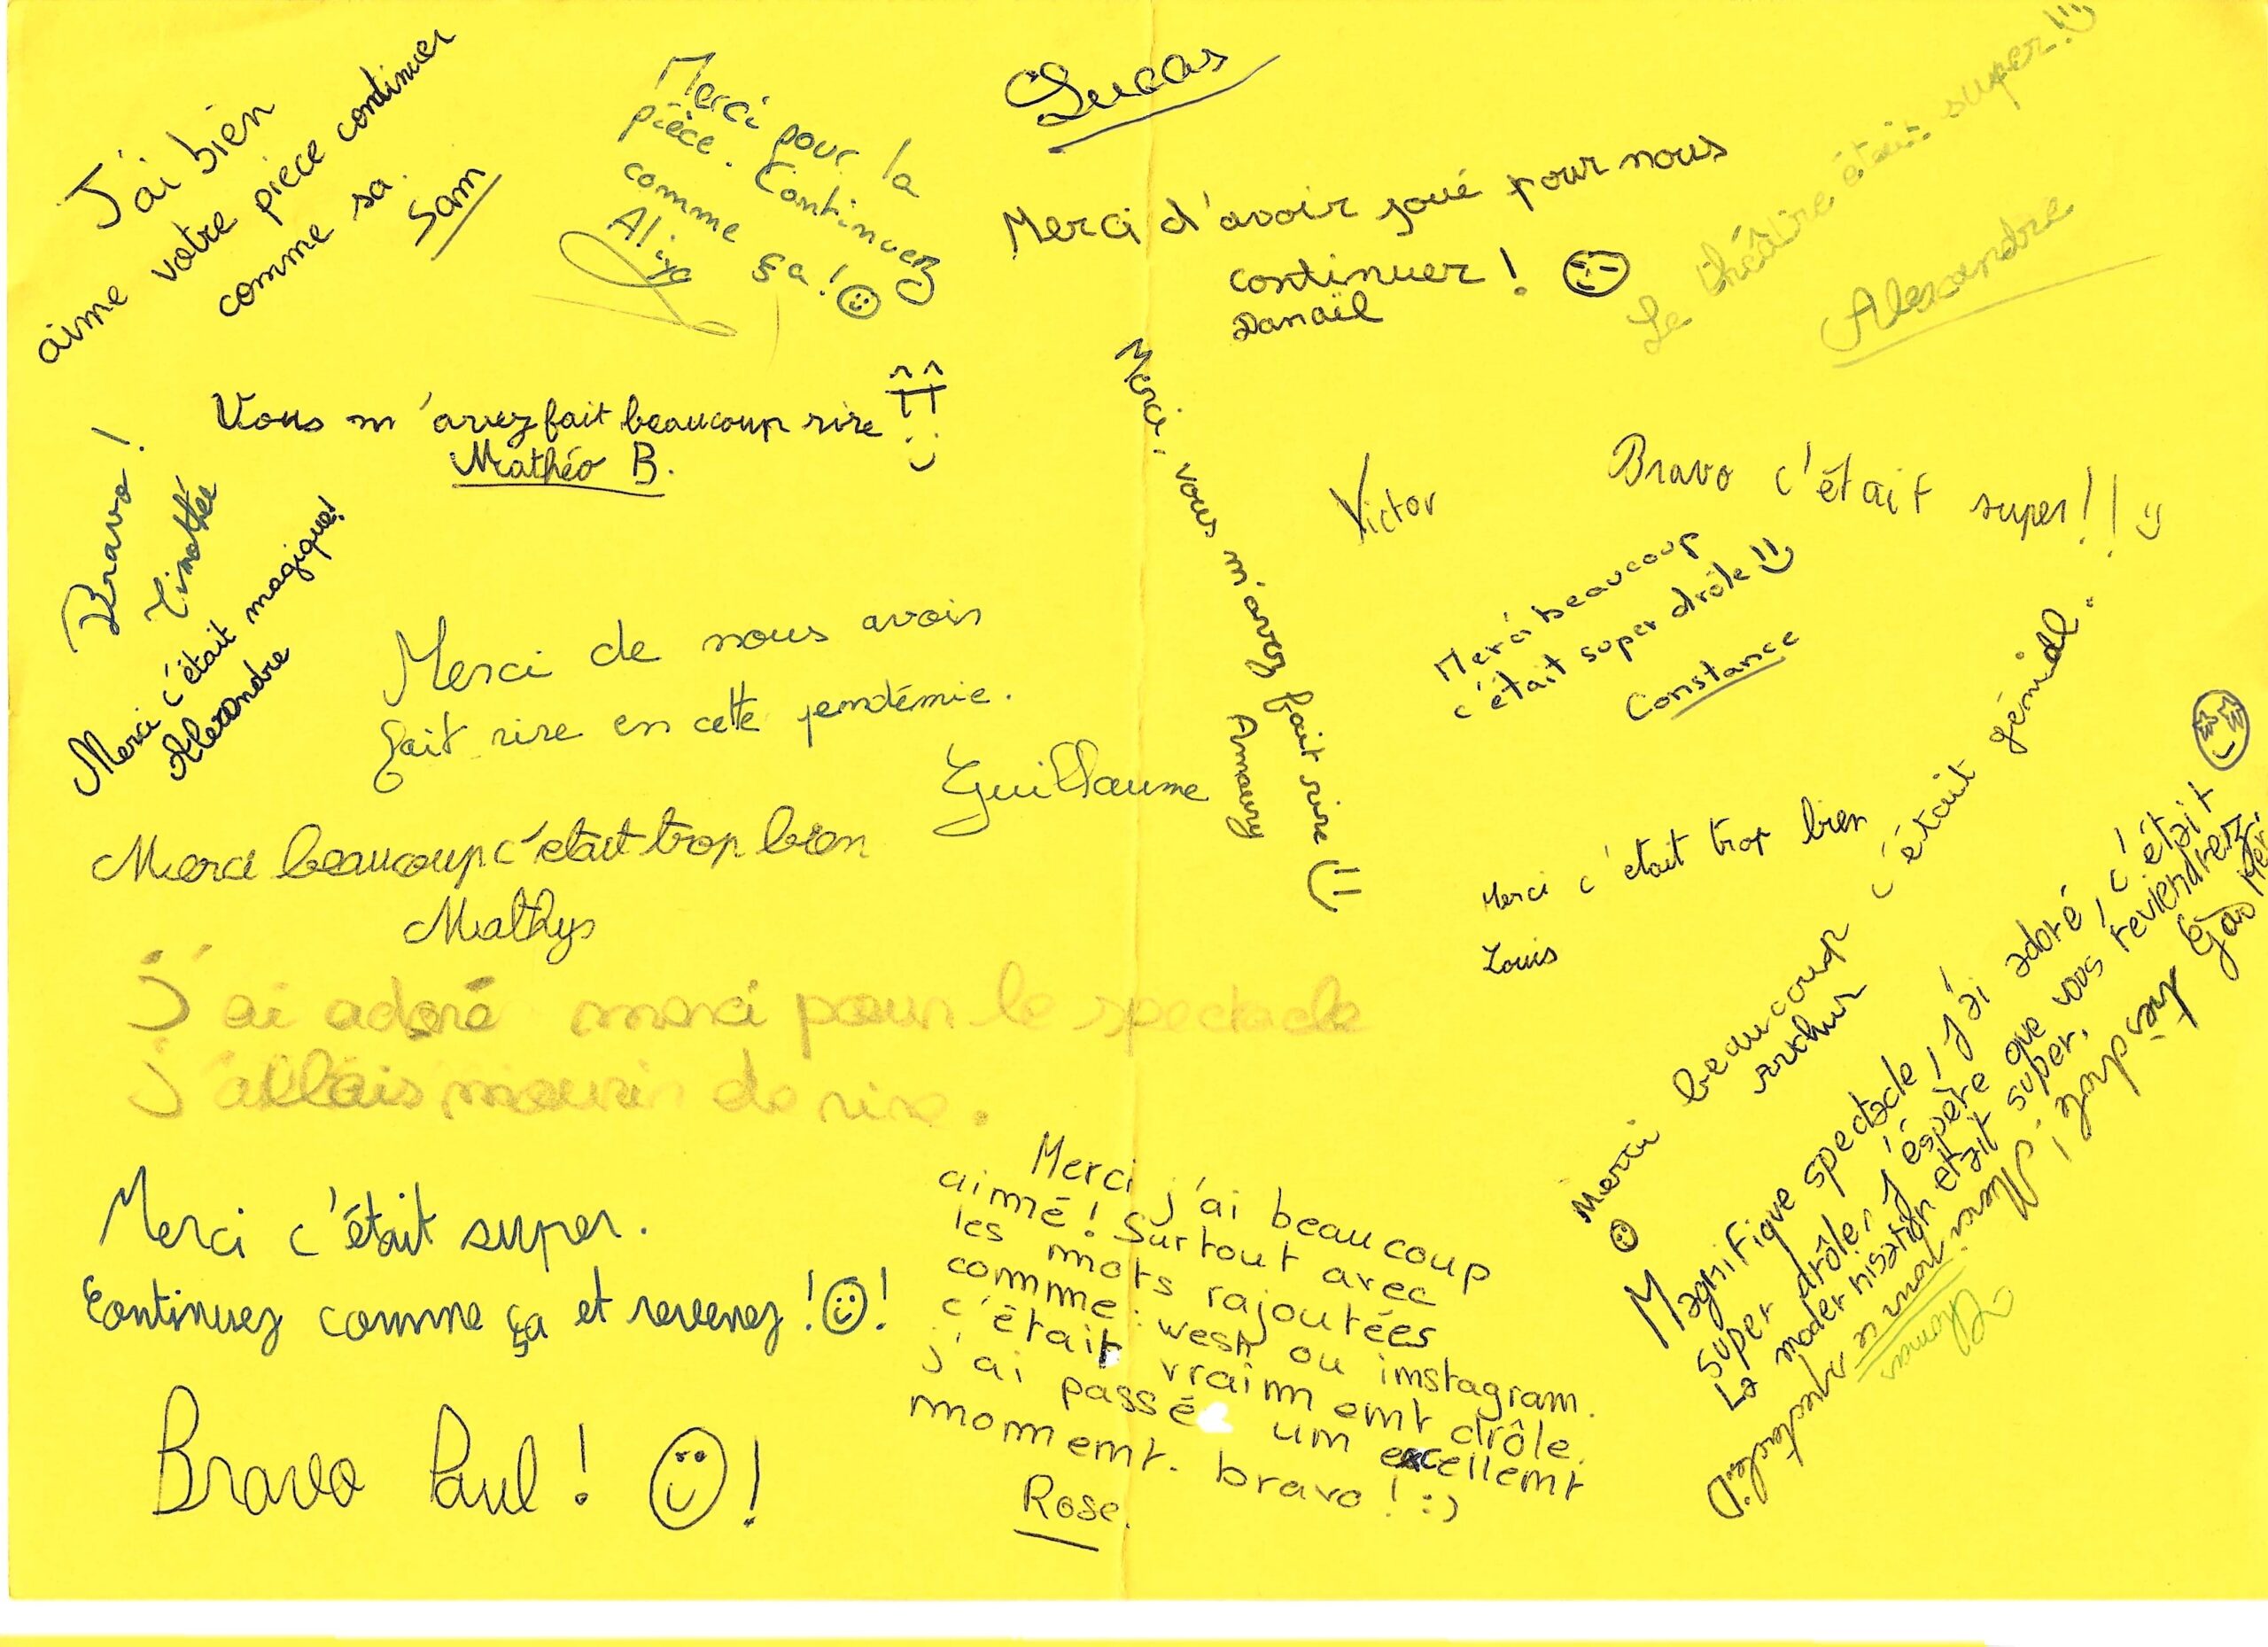 J'ai bien
aime votre pièce continuer
comme sa.
Sam
Merci pour la
pièce. Continuez
comme ça !
Lucas
Merci d'avoir joué pour nous
continuer !
Danaïl
Le théâtre était super !
Alexandre
Vous m'avez fait beaucoup rire
Mathéo B.
Bravo !
Timothée
Merci c'était magique!
Alexandre
Merci, vous m'avez fait rire
Amaury
Victor
Bravo c'était super!!
Merci beaucoup
c'était super drôle
Constance
Merci de nous avoir
fait rire en cette pendémie.
Guillaume
Merci beaucoup c'etait trop bien
Mathys
Merci c'etait trop bien
Louis
Merci beaucoup c'était génial.
Arthur
J'ai adoré merci pour le spectacle
j'allais mourir de rire.
Magnifique spectacle, J'ai adoré, c'était
super drôle, J'éspère que vous reviendrez
La modernisation etait super.
J'ai adoré
Thomas
Merci c'était super.
Continuez comme ça et revenez !!
Bravo Paul ! !
Merci j'ai beaucoup
aimé ! Surtout avec
les mots rajoutées
comme : wesh ou imstagram.
c'était vraimemt drôle.
j'ai passé um excellemt
momemt. bravo ! :)
Rose.